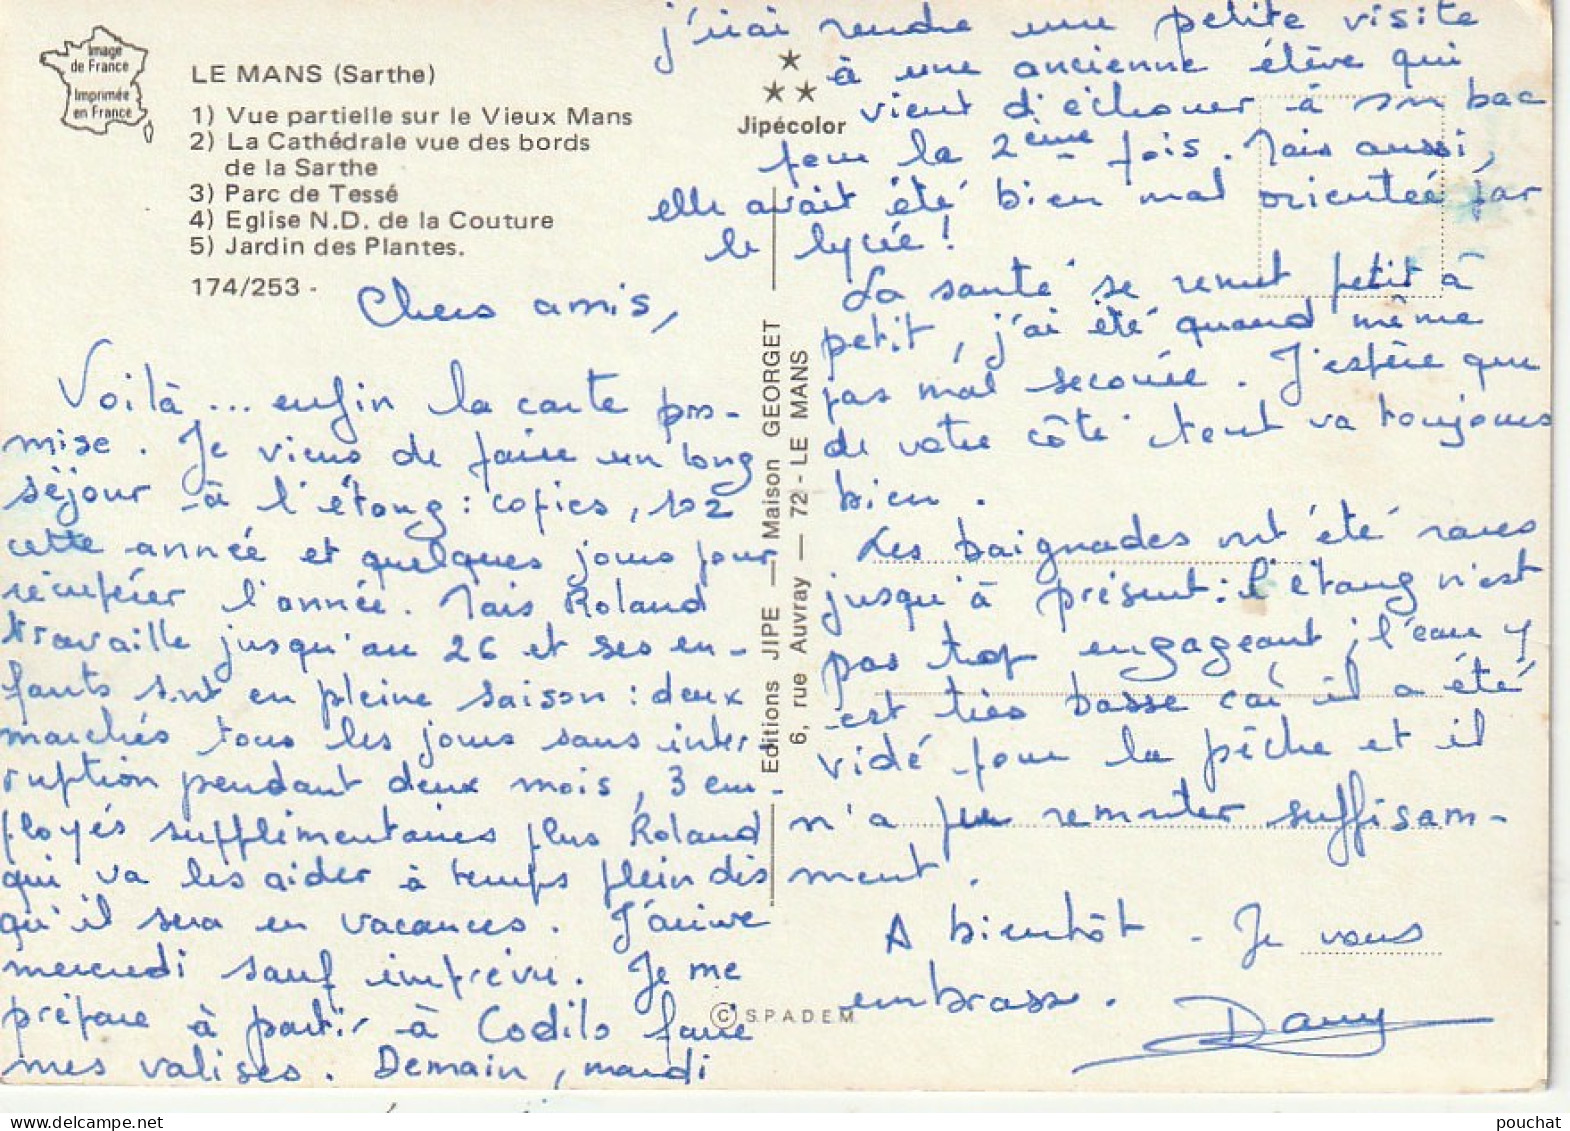 Image
de France
Imprimée
en France
LE MANS (Sarthe)
1) Vue partielle sur le Vieux Mans
2) La Cathédrale vue des bords
de la Sarthe
3) Parc de Tessé
4) Eglise N.D. de la Couture
5) Jardin des Plantes.
174/253 -
Jipécolor
Chers amis,
Voilà ... enfin la carte pro-
mise. Je viens de faire un long
séjour à l'étang : copies, 102
cette année et quelques jours pour
récupérer l'année. Mais Roland
travaille jusqu'au 26 et ses en-
fants sont en pleine saison : deux
marchés tous les jours sans inter
ruption pendant deux mois, 3 em-
ployés supplémentaires plus Roland
qui va les aider à temps plein dès
qu'il sera en vacances. J'arrive
mercredi sauf imprévu. Je me
prépare à partir à Codils faire
mes valises. Demain, mardi
j'irai rendre une petite visite
à une ancienne élève qui
vient d'échouer à son bac
pour la 2ème fois. Mais aussi,
elle avait été bien mal orienteé par
le lycée !
La santé se remet petit à
petit, j'ai été quand même
pas mal secouée. J'espère que
de votre côté tout va toujours
bien.
Les baignades ont été rares
jusqu'à présent : l'étang n'est
pas trop engageant ; l'eau y
est très basse car il a été
vidé pour la pêche et il
n'a pu remonter suffisam-
ment.
A bientôt - Je vous
embrasse.
Dany
Editions JIPE — Maison GEORGET
6, rue Auvray — 72 - LE MANS
© S.P.A.D.E.M.
pouchat